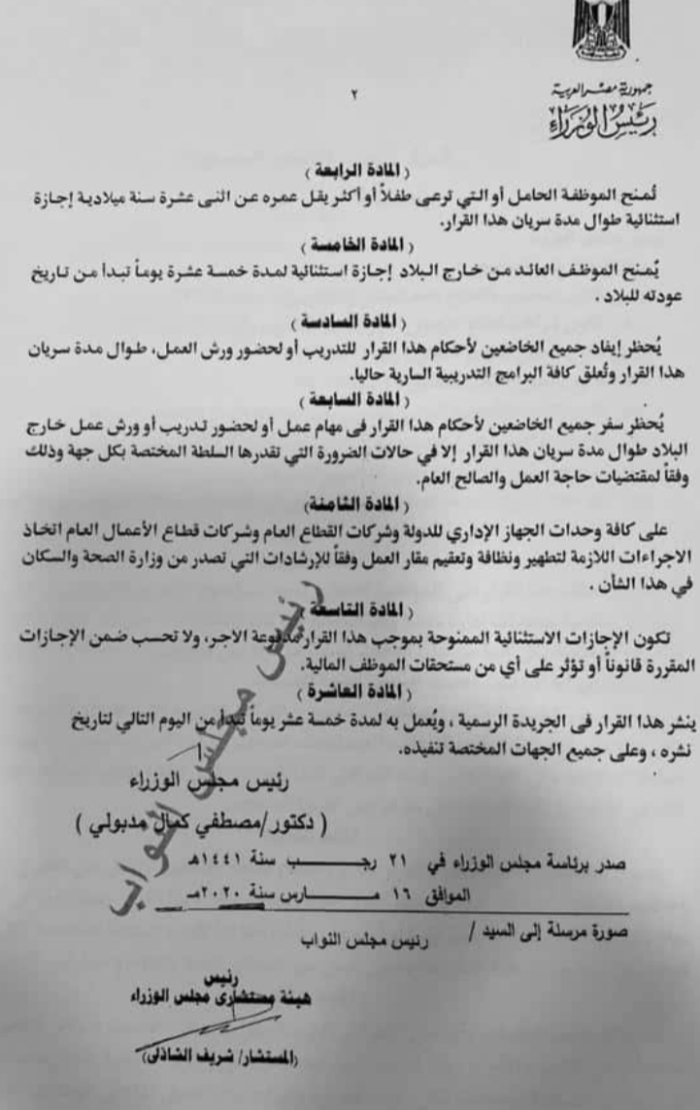 جمهورية مصر العربية
رئيس الوزراء
٢
( المادة الرابعة )
تُمنح الموظفة الحامل أو التي ترعى طفلاً أو أكثر يقل عمره عن اثنى عشرة سنة ميلادية إجازة
استثنائية طوال مدة سريان هذا القرار.
( المادة الخامسة )
يُمنح الموظف العائد من خارج البلاد إجازة استثنائية لمدة خمسة عشرة يوماً تبدأ من تاريخ
عودته للبلاد .
( المادة السادسة )
يُحظر إيفاد جميع الخاضعين لأحكام هذا القرار للتدريب أو لحضور ورش العمل، طوال مدة سريان
هذا القرار وتُعلق كافة البرامج التدريبية السارية حاليا.
( المادة السابعة )
يُحظر سفر جميع الخاضعين لأحكام هذا القرار فى مهام عمل أو لحضور تدريب أو ورش عمل خارج
البلاد طوال مدة سريان هذا القرار إلا في حالات الضرورة التي تقدرها السلطة المختصة بكل جهة وذلك
وفقاً لمقتضيات حاجة العمل والصالح العام.
(المادة الثامنة )
على كافة وحدات الجهاز الإداري للدولة وشركات القطاع العام وشركات قطاع الأعمال العام اتخاذ
الاجراءات اللازمة لتطهير ونظافة وتعقيم مقار العمل وفقاً للإرشادات التي تصدر من وزارة الصحة والسكان
في هذا الشأن .
( المادة التاسعة )
تكون الإجازات الاستثنائية الممنوحة بموجب هذا القرار مدفوعة الاجر، ولا تحسب ضمن الإجازات
المقررة قانوناً أو تؤثر على أي من مستحقات الموظف المالية.
( المادة العاشرة )
ينشر هذا القرار فى الجريدة الرسمية ، ويُعمل به لمدة خمسة عشر يوماً تبدأ من اليوم التالي لتاريخ
نشره ، وعلى جميع الجهات المختصة تنفيذه.
رئيس مجلس الوزراء
( دكتور/مصطفي كمال مدبولي )
صدر برئاسة مجلس الوزراء في ٢١ رجـــب سنة ١٤٤١هـ
الموافق ١٦ مـــارس سنة ٢٠٢٠مـ
صورة مرسلة إلى السيد / رئيس مجلس النواب
رئيس
هيئة مستشارى مجلس الوزراء
(المستشار/ شريف الشاذلى)
رئيس مجلس النواب